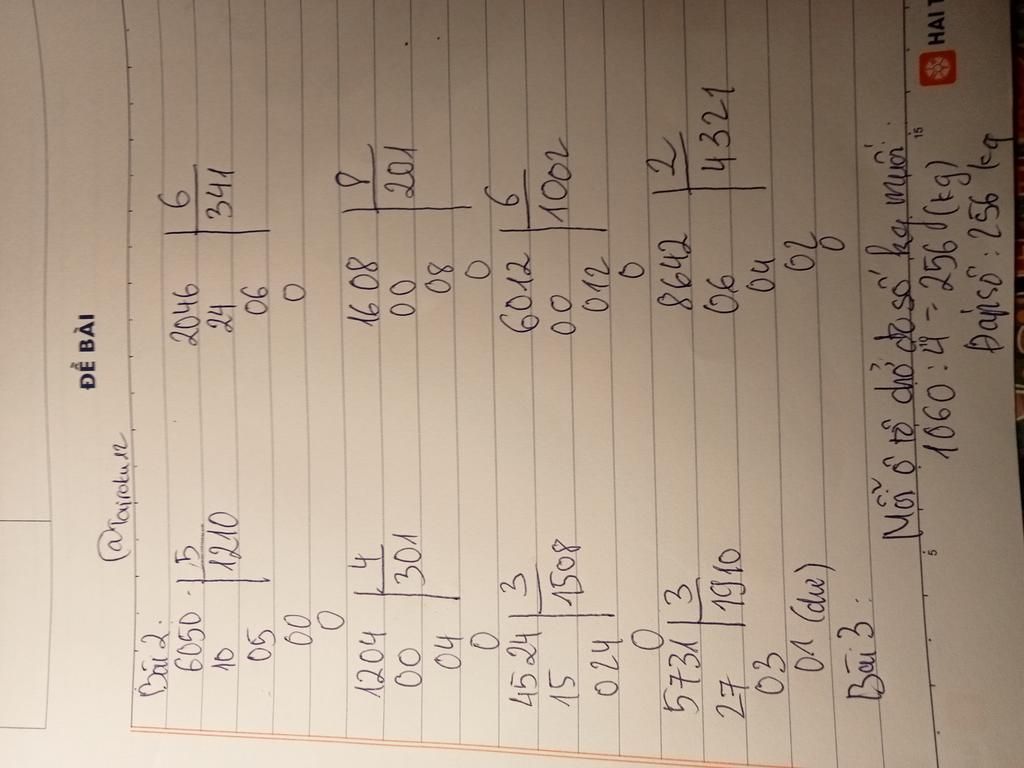 ĐỀ BÀI
Bài 2.
6050 5 2046 6
10 1210 24 341
05 06
00 0
0
1204 4 1608 8
00 301 00 201
04 08
0 0
4524 3 6012 6
15 1508 00 1002
024 012
0 0
5731 3 8642 2
27 1910 06 4321
03 04
01 (dư) 02
Bài 3: 0
Mỗi ô tô chở số kg muối.
5 15
1060 : 4 = 256 (kg)
Đáp số : 256 kg
HAI T